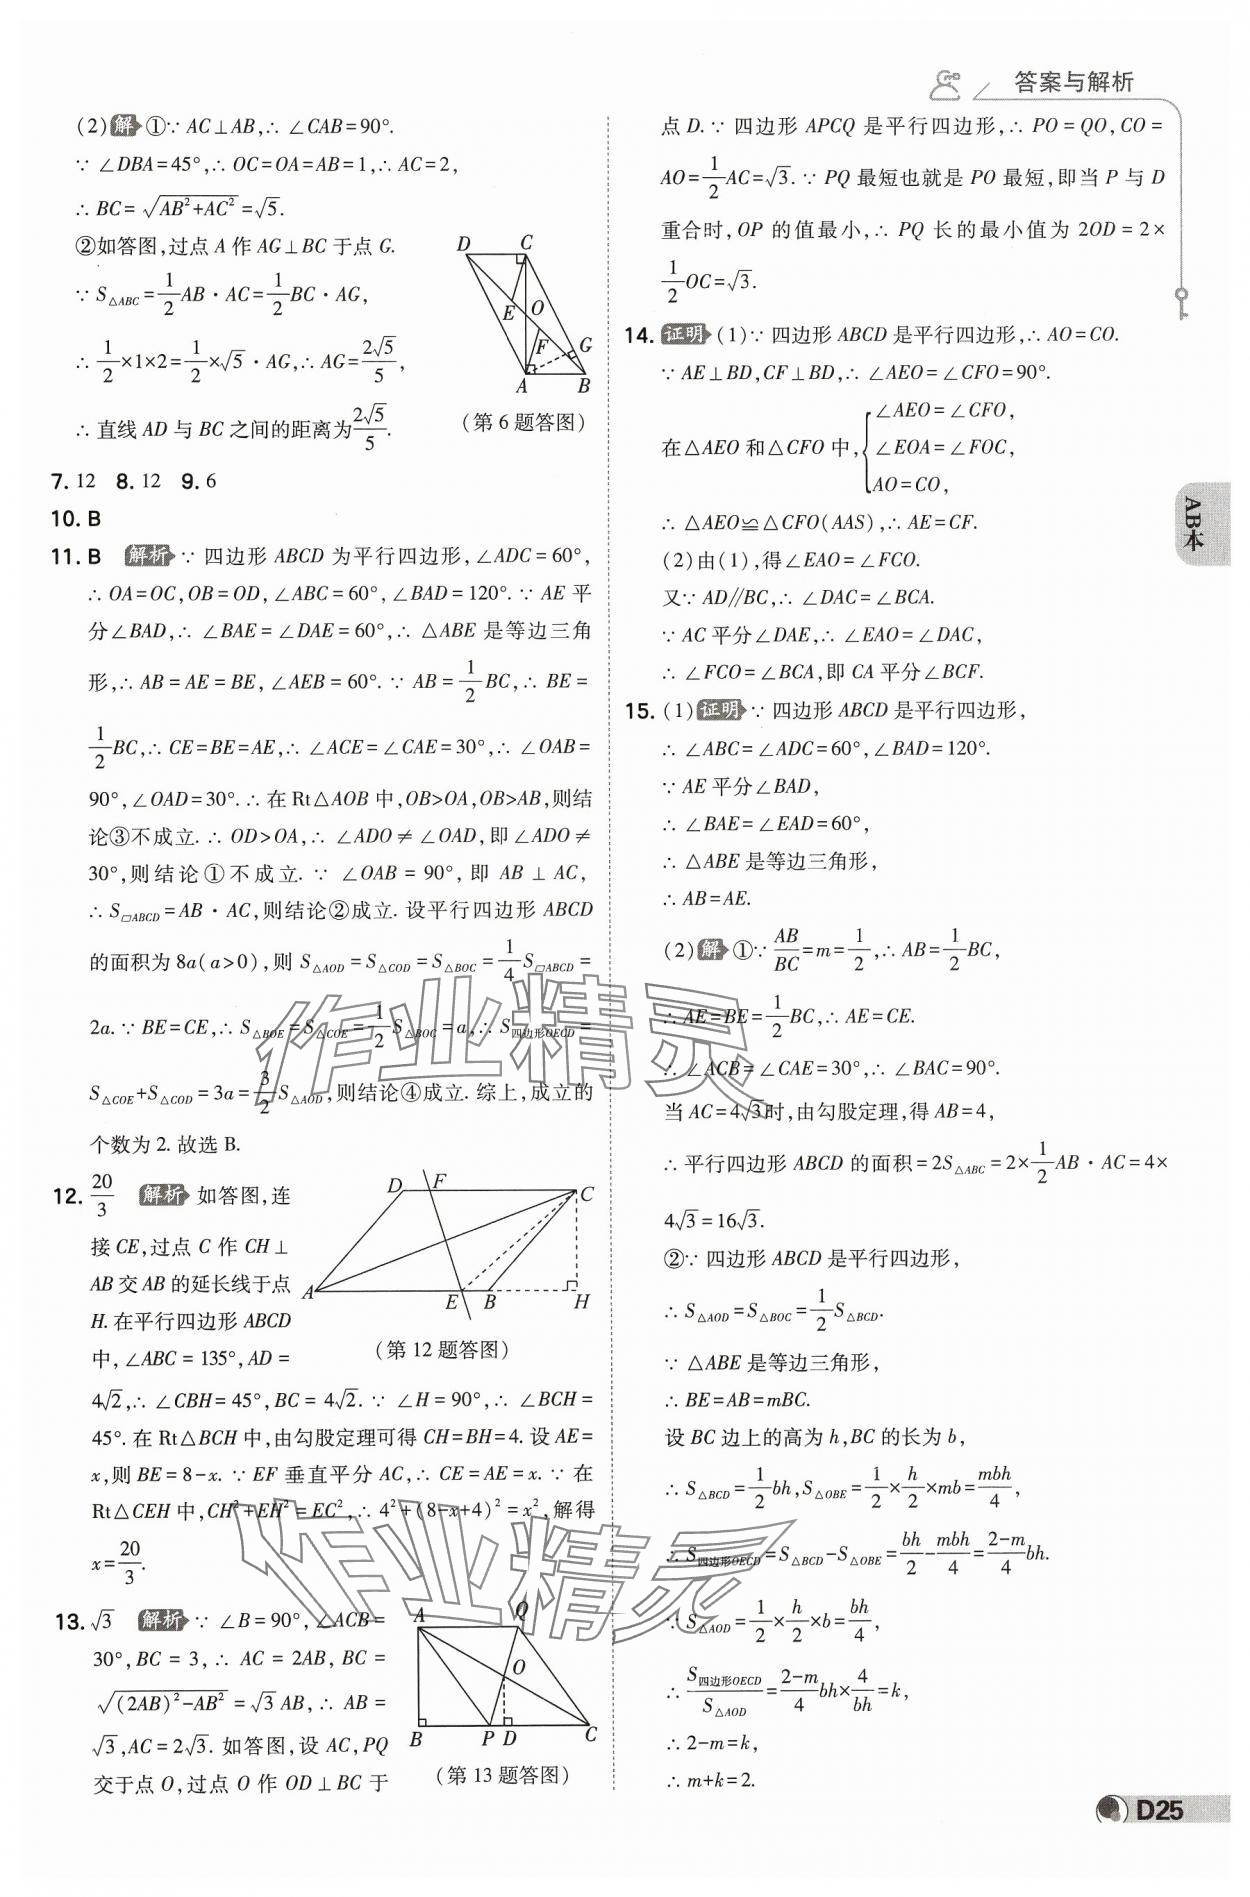 答案与解析
(2)解 ①∵ AC⊥AB,∴ ∠CAB=90°.
∵ ∠DBA=45°,∴ OC=OA=AB=1,∴ AC=2,
∴ BC=√(AB²+AC²)=√5.
②如答图,过点 A 作 AG⊥BC 于点 G.
∵ S△ABC=1/2 AB·AC=1/2 BC·AG,
∴ 1/2×1×2=1/2×√5·AG,∴ AG=2√5/5,
∴ 直线 AD 与 BC 之间的距离为2√5/5.
D C E O F G A B
(第 6 题答图)
7. 12 8. 12 9. 6
10. B
11. B 解析 ∵ 四边形 ABCD 为平行四边形,∠ADC=60°,
∴ OA=OC,OB=OD,∠ABC=60°,∠BAD=120°.∵ AE 平
分∠BAD,∴ ∠BAE=∠DAE=60°,∴ △ABE 是等边三角
形,∴ AB=AE=BE,∠AEB=60°.∵ AB=1/2 BC,∴ BE=
1/2 BC,∴ CE=BE=AE,∴ ∠ACE=∠CAE=30°,∴ ∠OAB=
90°,∠OAD=30°.∴ 在 Rt△AOB 中,OB>OA,OB>AB,则结
论③不成立.∴ OD>OA,∴ ∠ADO≠∠OAD,即∠ADO≠
30°,则结论①不成立.∵ ∠OAB=90°,即 AB⊥AC,
∴ S▱ABCD=AB·AC,则结论②成立.设平行四边形 ABCD
的面积为 8a(a>0),则 S△AOD=S△COD=S△BOC=1/4 S▱ABCD=
2a.∵ BE=CE,∴ S△BOE=S△COE=1/2 S△BOC=a,∴ S四边形OECD=
S△COE+S△COD=3a=3/2 S△AOD,则结论④成立.综上,成立的
个数为 2.故选 B.
12. 20/3 解析 如答图,连
接 CE,过点 C 作 CH⊥
AB 交 AB 的延长线于点
H.在平行四边形 ABCD
中,∠ABC=135°,AD=
D F C A E B H
(第 12 题答图)
4√2,∴ ∠CBH=45°,BC=4√2.∵ ∠H=90°,∴ ∠BCH=
45°.在 Rt△BCH 中,由勾股定理可得 CH=BH=4.设 AE=
x,则 BE=8-x.∵ EF 垂直平分 AC,∴ CE=AE=x.∵ 在
Rt△CEH 中,CH²+EH²=EC²,∴ 4²+(8-x+4)²=x²,解得
x=20/3.
13. √3 解析 ∵ ∠B=90°,∠ACB=
30°,BC=3,∴ AC=2AB,BC=
√((2AB)²-AB²)=√3 AB,∴ AB=
√3,AC=2√3.如答图,设 AC,PQ
交于点 O,过点 O 作 OD⊥BC 于
A Q O B P D C
(第 13 题答图)
点 D.∵ 四边形 APCQ 是平行四边形,∴ PO=QO,CO=
AO=1/2 AC=√3.∵ PQ 最短也就是 PO 最短,即当 P 与 D
重合时,OP 的值最小,∴ PQ 长的最小值为 2OD=2×
1/2 OC=√3.
14. 证明 (1)∵ 四边形 ABCD 是平行四边形,∴ AO=CO.
∵ AE⊥BD,CF⊥BD,∴ ∠AEO=∠CFO=90°.
∠AEO=∠CFO,
在△AEO 和△CFO 中,{∠EOA=∠FOC,
AO=CO,
∴ △AEO≌△CFO(AAS),∴ AE=CF.
(2)由(1),得∠EAO=∠FCO.
又∵ AD∥BC,∴ ∠DAC=∠BCA.
∵ AC 平分∠DAE,∴ ∠EAO=∠DAC,
∴ ∠FCO=∠BCA,即 CA 平分∠BCF.
15. (1)证明 ∵ 四边形 ABCD 是平行四边形,
∴ ∠ABC=∠ADC=60°,∠BAD=120°.
∵ AE 平分∠BAD,
∴ ∠BAE=∠EAD=60°,
∴ △ABE 是等边三角形,
∴ AB=AE.
(2)解 ①∵ AB/BC=m=1/2,∴ AB=1/2 BC,
∴ AE=BE=1/2 BC,∴ AE=CE.
∴ ∠ACB=∠CAE=30°,∴ ∠BAC=90°.
当 AC=4√3时,由勾股定理,得 AB=4,
∴ 平行四边形 ABCD 的面积=2S△ABC=2×1/2 AB·AC=4×
4√3=16√3.
②∵ 四边形 ABCD 是平行四边形,
∴ S△AOD=S△BOC=1/2 S△BCD.
∵ △ABE 是等边三角形,
∴ BE=AB=mBC.
设 BC 边上的高为 h,BC 的长为 b,
∴ S△BCD=1/2 bh,S△OBE=1/2×h/2×mb=mbh/4,
∴ S四边形OECD=S△BCD-S△OBE=bh/2-mbh/4=(2-m)/4 bh.
∵ S△AOD=1/2×h/2×b=bh/4,
∴ S四边形OECD/S△AOD=(2-m)/4 bh×4/bh=k,
∴ 2-m=k,
∴ m+k=2.
AB本
D25
作业精灵
作业精灵